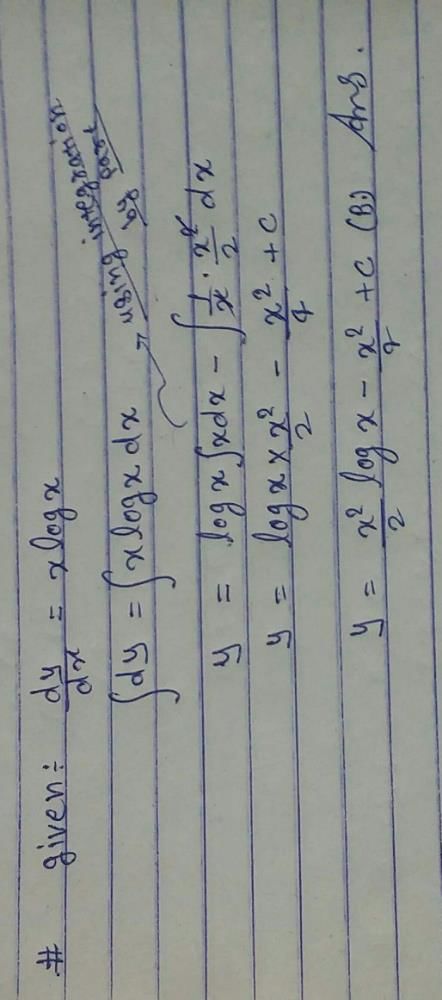 # given:- dy/dx = x log x
∫dy = ∫x log x dx → using integration by part
y = log x ∫x dx - ∫1/x · x²/2 dx
y = log x × x²/2 - x²/4 + c
y = x²/2 log x - x²/4 + c (B) Ans.